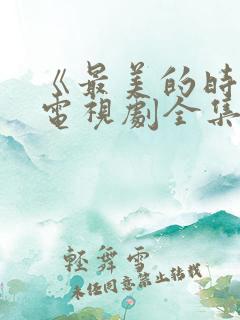 《最美的時
電視劇全集
輕舞雪
未經同意禁止轉載